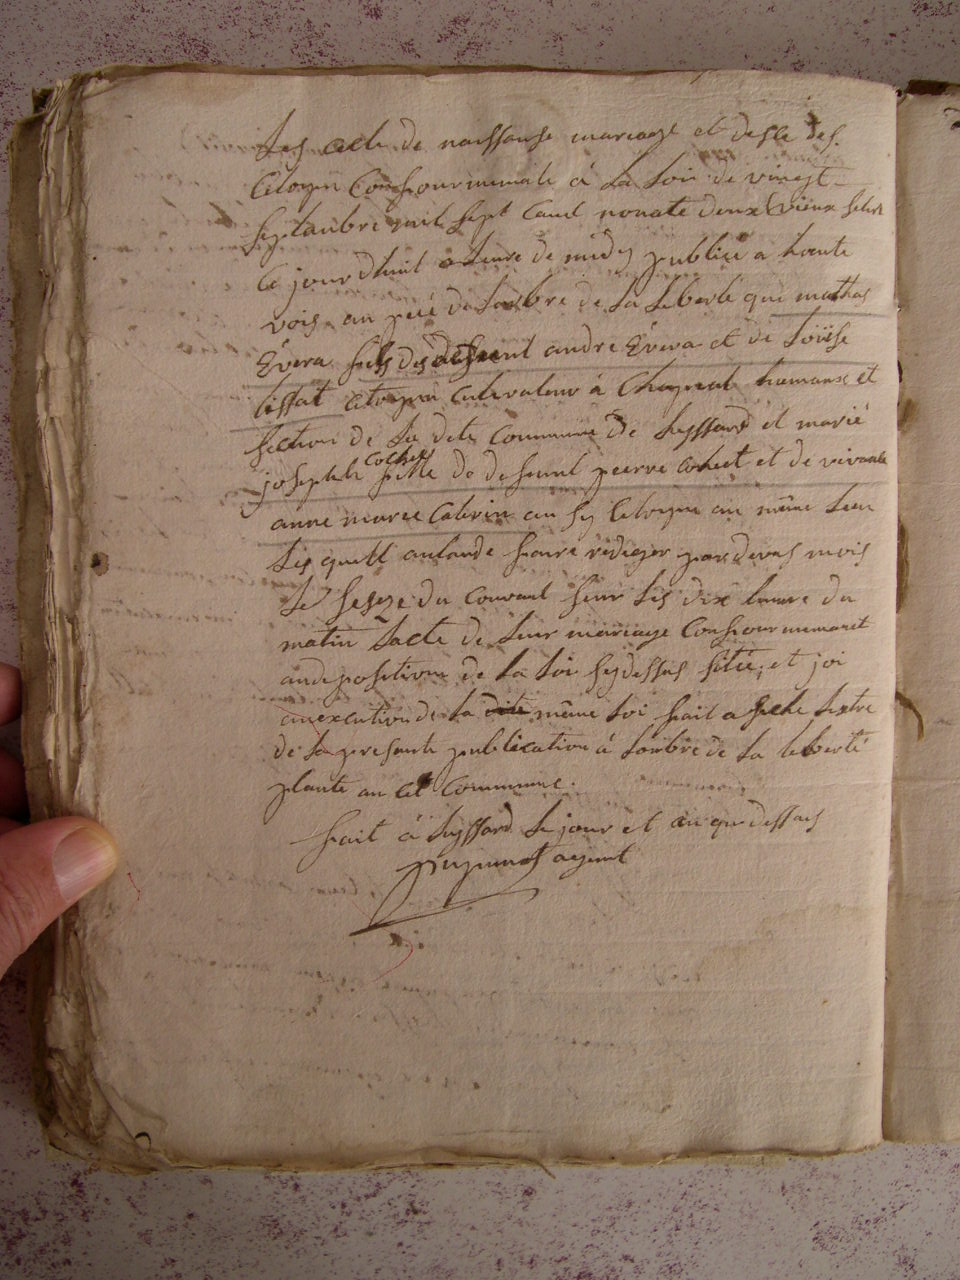 Les acte de naissanse mariage et desse des
Citoyen Confourmemate à La Loix de vinegt
septanbre mil sept Cand nonate deux vieux stile
Ce jour dhuit a Leure de midy publiée a haute
vois au piéé de Larbre de La Liberte que mathas
Évera fils de defeunt andre Évera et de Loüïse
tissat citoyen cultivateur à hamaux et
section de La dite Commune de Leyssard et marié
josephte cochet fille de defeunt pierre cohet et de vivante
anne marie Caterin au sy Citoyene au même Lieu
Lesquell antande faire rédiger par devas mois
Le sesze du Courant sur Les dix heure du
matin Lacte de Leur mariage Confourmemant
audeposition de La Loi sydessus sitée, et joi
an execution de La dite même Loi fait afiche Lextre
de La presante publication à Larbre de La Liberté
plante an cet Commune.
fait à Leyssard Le jour et an que dessus
agent